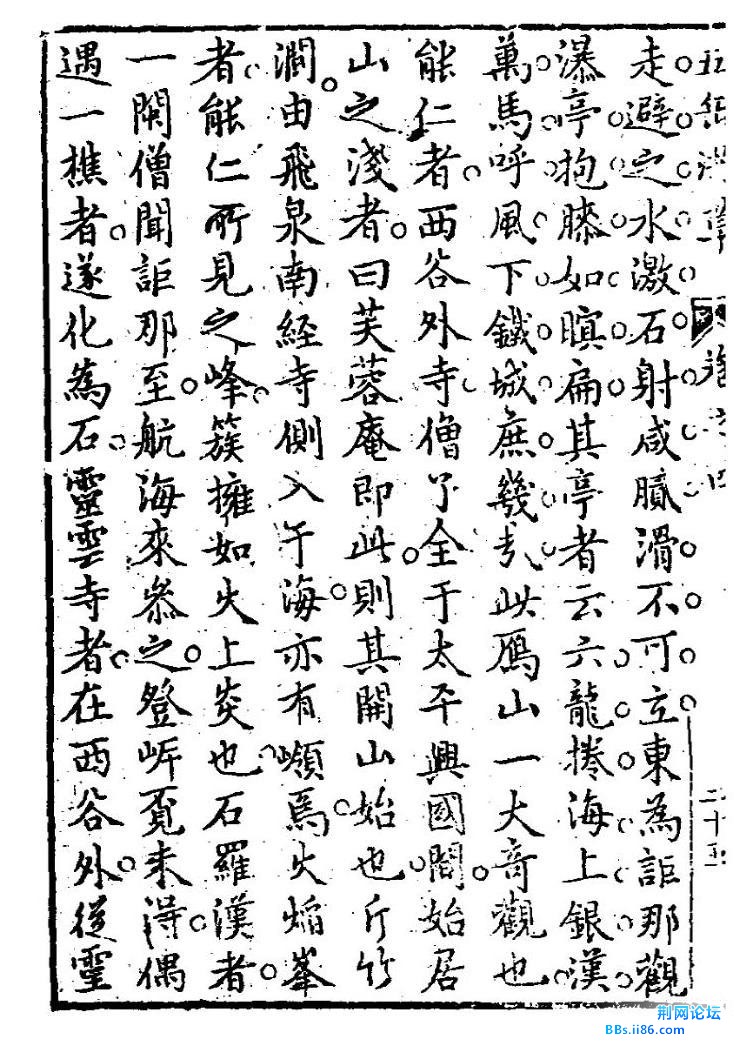 走避之水激石射咸膩滑不可立東為詎那觀
瀑亭抱膝如瞑扁其亭者云六龍捲海上銀漢
萬馬呼風下鐵城庶幾哉此鴈山一大奇觀也
能仁者西谷外寺僧了全于太平興國間始居
山之淺者曰芙蓉庵即此則其開山始也斤竹
澗由飛泉南經寺側入于海亦有嶺焉火焰峯
者能仁所見之峰簇擁如火上炎也石羅漢者
一閩僧聞詎那至航海來參之登岍覓未得偶
遇一樵者遂化為石靈雲寺者在西谷外從靈
二十五
荆网论坛
BBs.ii86.com